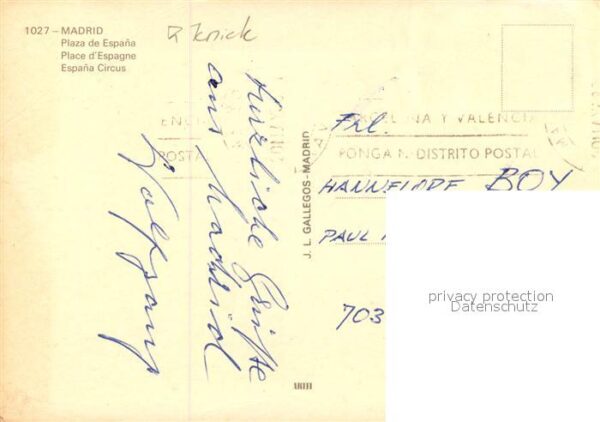 1027 – MADRID
Plaza de España
Place d'Espagne
España Circus
Knick
Herzliche Grüße
aus Madrid
Wolfgang
J. L. GALLEGOS-MADRID
Y VALENCIA
PONGA N. DISTRITO POSTAL
POSTA
Frl.
HANNELORE BOY
PAUL
703
privacy protection
Datenschutz